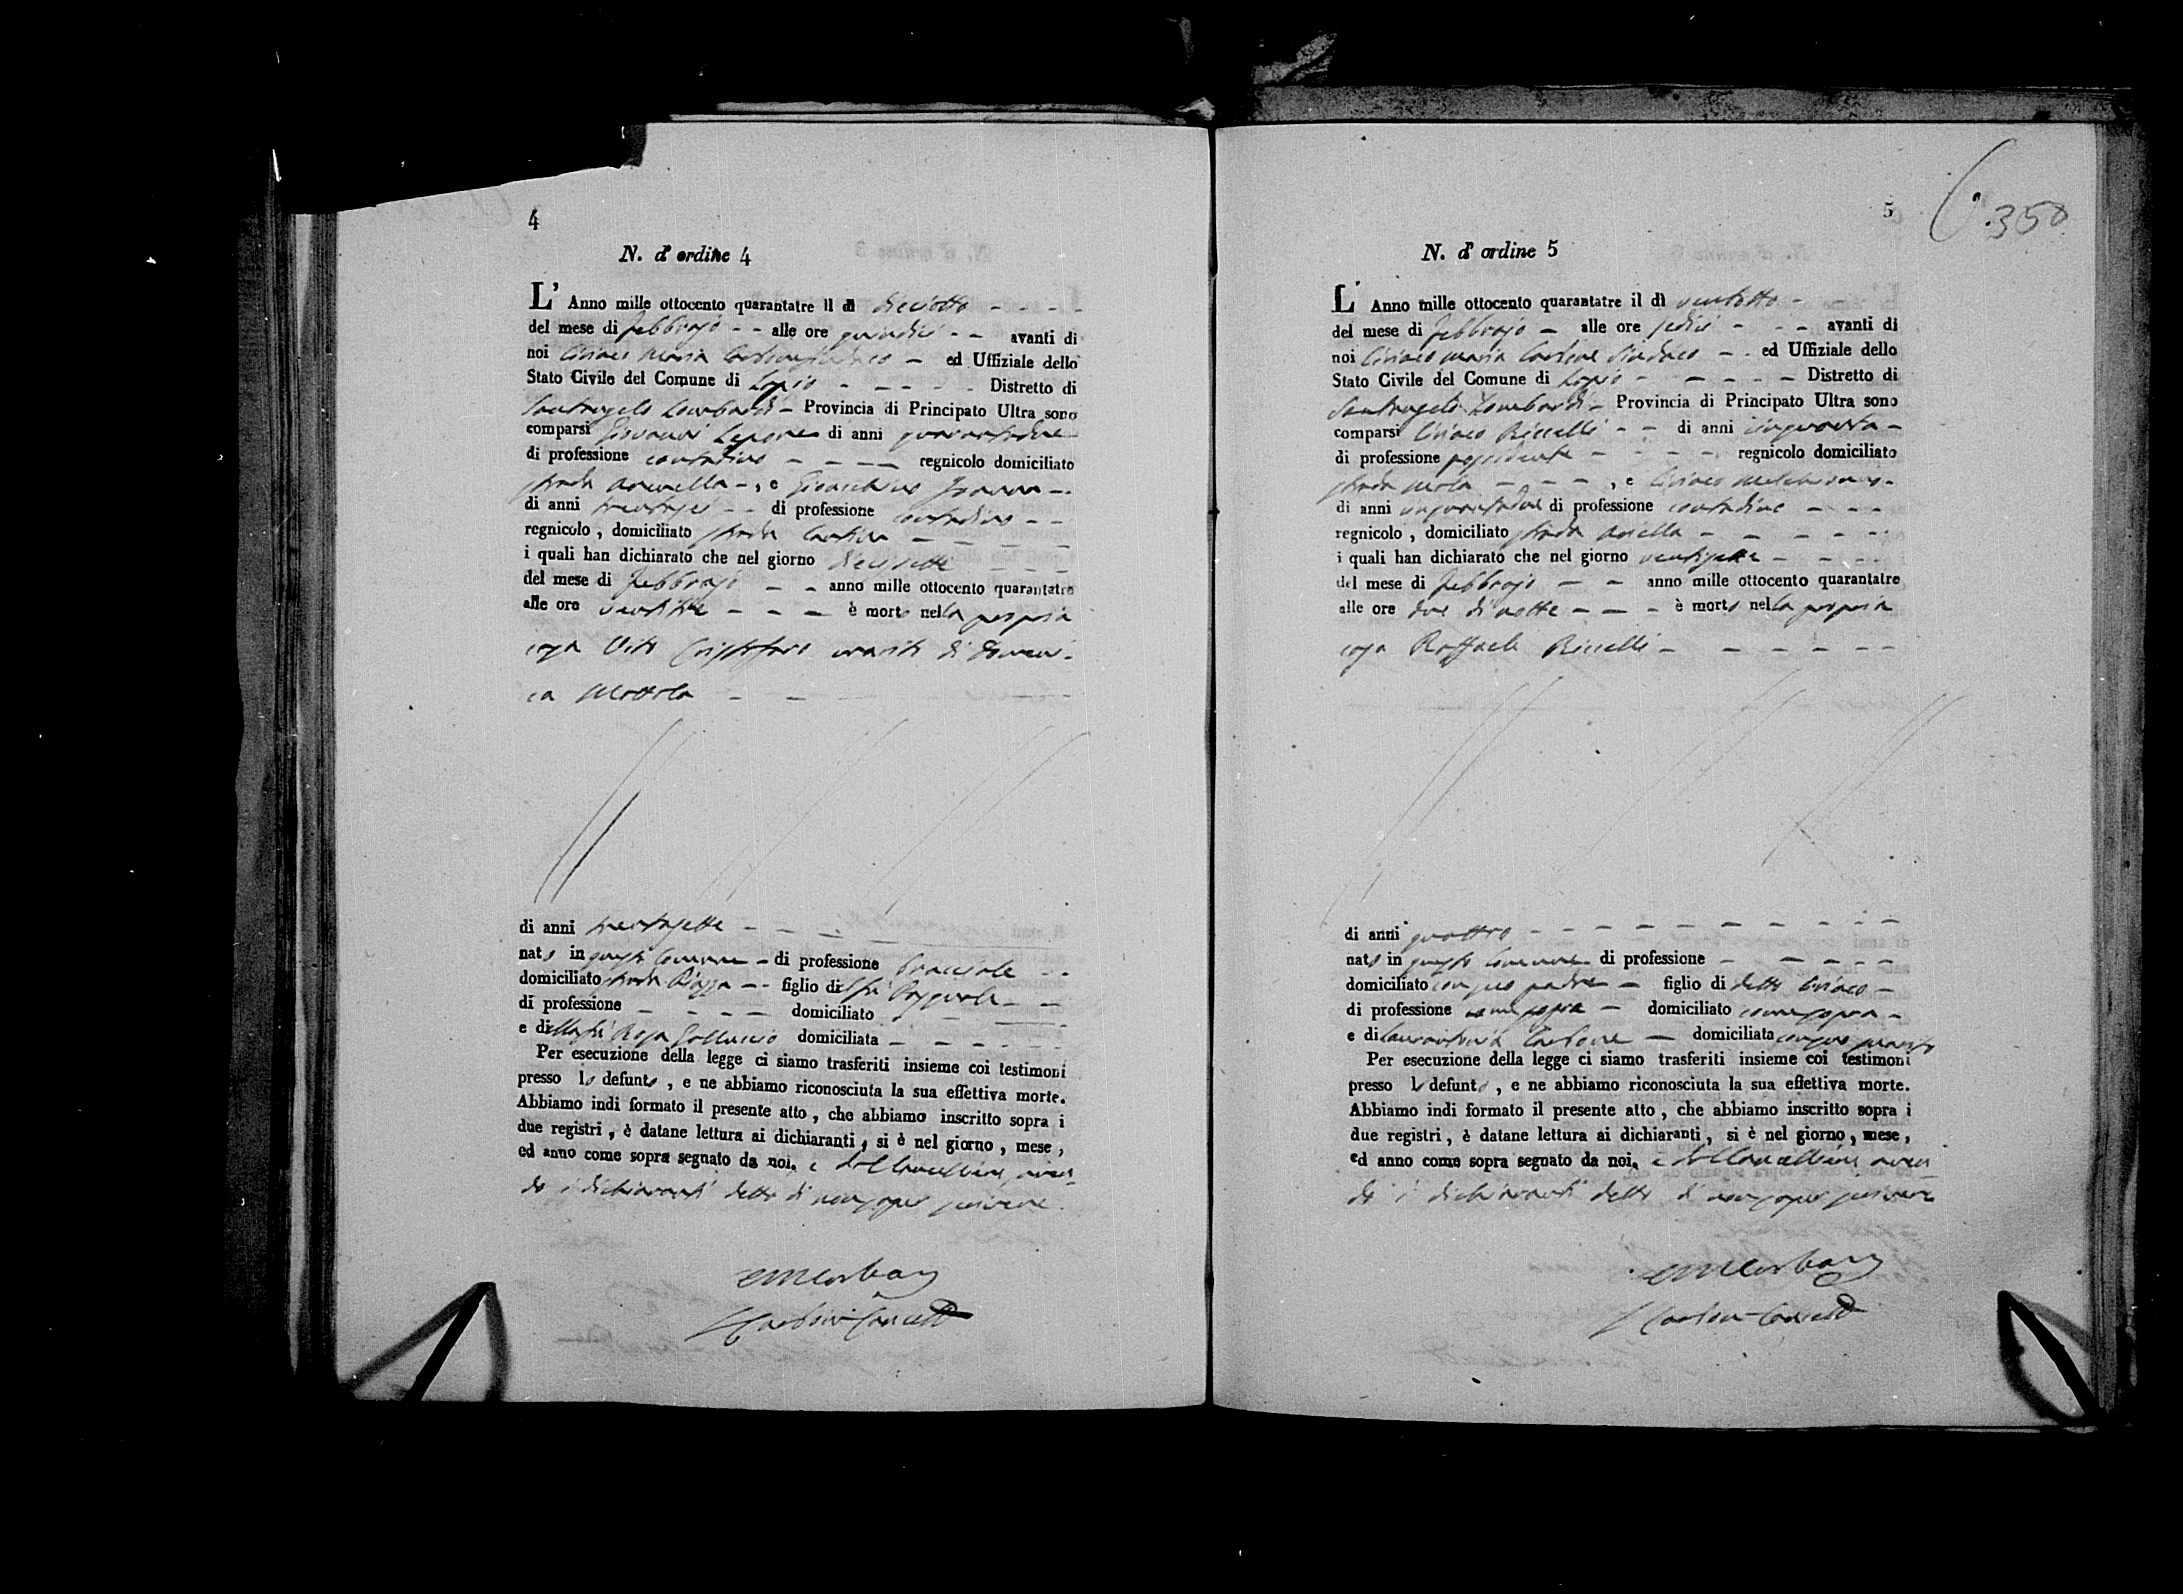 4
N. d'ordine 4
L' Anno mille ottocento quarantatre il dì dieciotto
del mese di febbrajo alle ore quindici avanti di
noi Ciriaco Maria Carbone Sindaco ed Uffiziale dello
Stato Civile del Comune di Lapio Distretto di
Santangelo Lombardi Provincia di Principato Ultra sono
comparsi Giovanni Lepore di anni quarantadue
di professione contadino regnicolo domiciliato
strada , e Gioacchino
di anni trentasei di professione contadino
regnicolo , domiciliato strada
i quali han dichiarato che nel giorno diecisette
del mese di febbrajo anno mille ottocento quarantatre
alle ore ventitre è morto nella propria
casa Vito Cristofaro marito di Domeni-
ca Mottola
di anni trentasette
nato in questo Comune di professione bracciale
domiciliato strada Piazza figlio del fu Pasquale
di professione domiciliato
e della fu Rosa Galluccio domiciliata
Per esecuzione della legge ci siamo trasferiti insieme coi testimoni
presso lo defunto , e ne abbiamo riconosciuta la sua effettiva morte.
Abbiamo indi formato il presente atto , che abbiamo inscritto sopra i
due registri , è datane lettura ai dichiaranti , si è nel giorno , mese ,
ed anno come sopra segnato da noi, e dal Cancelliere, aven-
do i dichiaranti detto di non saper scrivere
CMCarbone
Carbone Cancell
5
350
N. d'ordine 5
L' Anno mille ottocento quarantatre il dì ventotto
del mese di febbrajo alle ore sedici avanti di
noi Ciriaco Maria Carbone Sindaco ed Uffiziale dello
Stato Civile del Comune di Lapio Distretto di
Santangelo Lombardi Provincia di Principato Ultra sono
comparsi Ciriaco Riccelli di anni cinquanta
di professione possidente regnicolo domiciliato
strada , e Ciriaco
di anni cinquantadue di professione contadino
regnicolo , domiciliato strada
i quali han dichiarato che nel giorno ventisette
del mese di febbrajo anno mille ottocento quarantatre
alle ore due di notte è morto nella propria
casa Raffaele Riccelli
di anni quattro
nato in questo Comune di professione
domiciliato con suo padre figlio di detto Ciriaco
di professione come sopra domiciliato come sopra
e di Carbone domiciliata con suo marito
Per esecuzione della legge ci siamo trasferiti insieme coi testimoni
presso lo defunto , e ne abbiamo riconosciuta la sua effettiva morte.
Abbiamo indi formato il presente atto , che abbiamo inscritto sopra i
due registri , è datane lettura ai dichiaranti , si è nel giorno , mese ,
ed anno come sopra segnato da noi, e dal Cancelliere aven-
do i dichiaranti detto di non saper scrivere
CMCarbone
Carbone Cancell